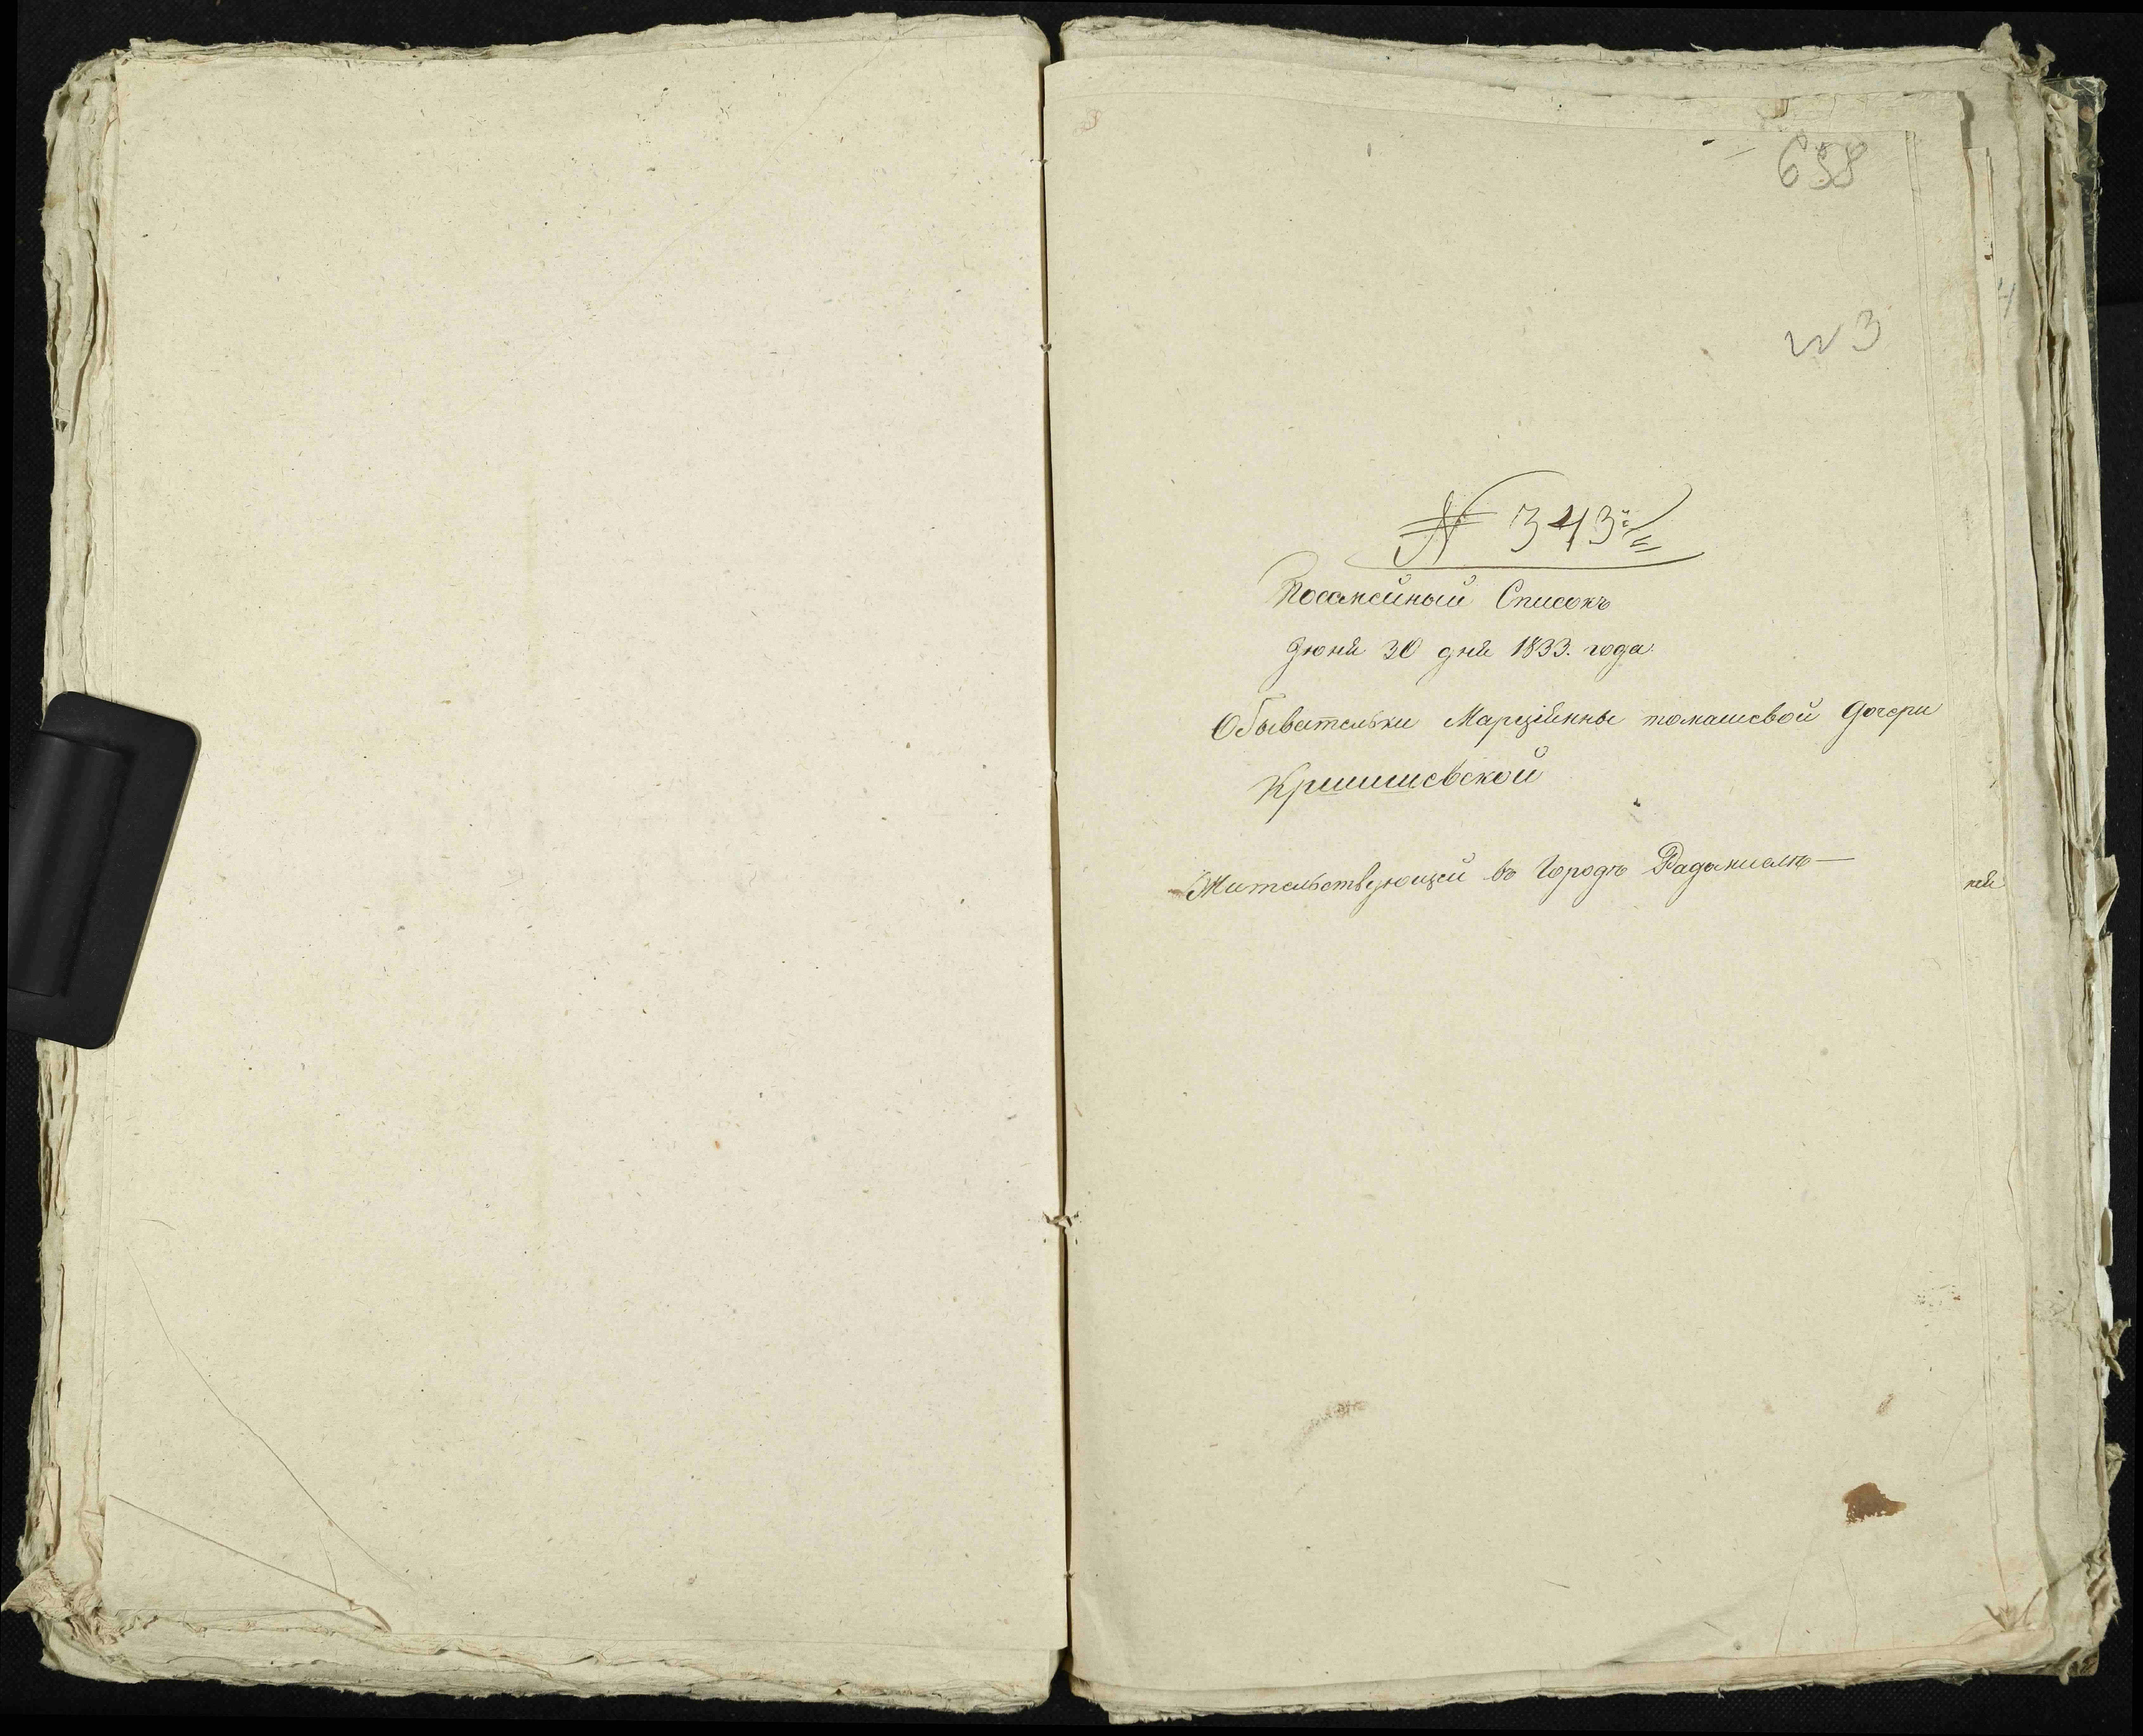 658
№ 343й
Посемейный Списокъ
Июня 30 дня 1833. года.
Обывательки Марціянны томашевой дочери
Кришшевской
Жительствующей въ Городѣ Радомислѣ—